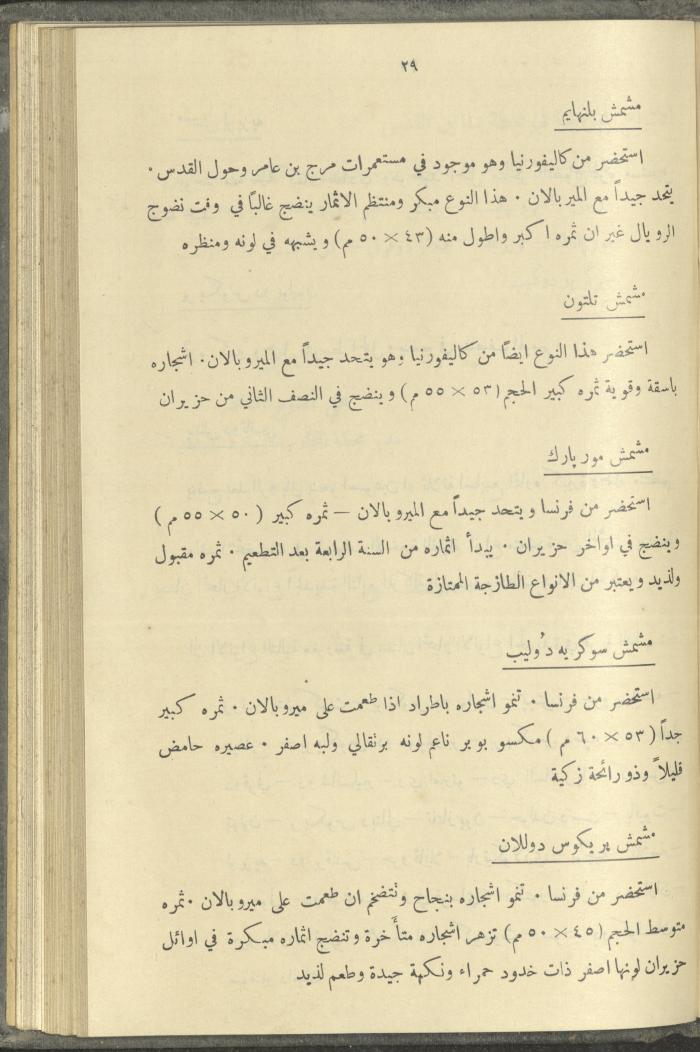 ٢٩
مشمش بلنهايم
استحضر من كاليفورنيا وهو موجود في مستعمرات مرج بن عامر وحول القدس ·
يتحد جيداً مع الميربالان · هذا النوع مبكر ومنتظم الاثمار ينضج غالباً في وقت نضوج
الرويال غير ان ثمره اكبر واطول منه (٤٣ × ٥٠ م) ويشبهه في لونه ومنظره
مشمش تلتون
استحضر هذا النوع ايضاً من كاليفورنيا وهو يتحد جيداً مع الميروبالان · اشجاره
باسقة وقوية ثمره كبير الحجم (٥٣ × ٥٥ م) وينضج في النصف الثاني من حزيران
مشمش مور پارك
استحضر من فرنسا ويتحد جيداً مع الميروبالان — ثمره كبير (٥٠ × ٥٥ م)
وينضج في اواخر حزيران · يبدأ اثماره من السنة الرابعة بعد التطعيم · ثمره مقبول
ولذيد ويعتبر من الانواع الطازجة الممتازة
مشمش سوكريه دُوليب
استحضر من فرنسا · تنمو اشجاره باطراد اذا طعمت على ميروبالان · ثمره كبير
جداً (٥٣ × ٦٠ م) مكسو بوبر ناعم لونه برتقالي ولبه اصفر · عصيره حامض
قليلاً وذو رائحة زكية
مشمش پريكوس دوللان
استحضر من فرنسا · تنمو اشجاره بنجاح وتتضخم ان طعمت على ميروبالان · ثمره
متوسط الحجم (٤٥ × ٥٠ م) تزهر اشجاره متأخرة وتنضج اثماره مبكرة في اوائل
حزيران لونها اصفر ذات خدود حمراء ونكهة جيدة وطعم لذيد